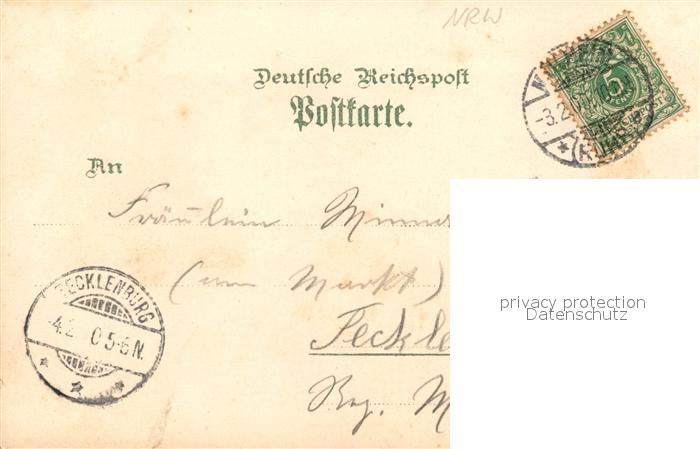 NRW
Deutsche Reichspost
Postkarte.
An
Fräulein Minna
(am Markt)
Teckle
Reg. M
TECKLENBURG
-4.2 0 5-6 N.
-3.2
5
privacy protection
Datenschutz